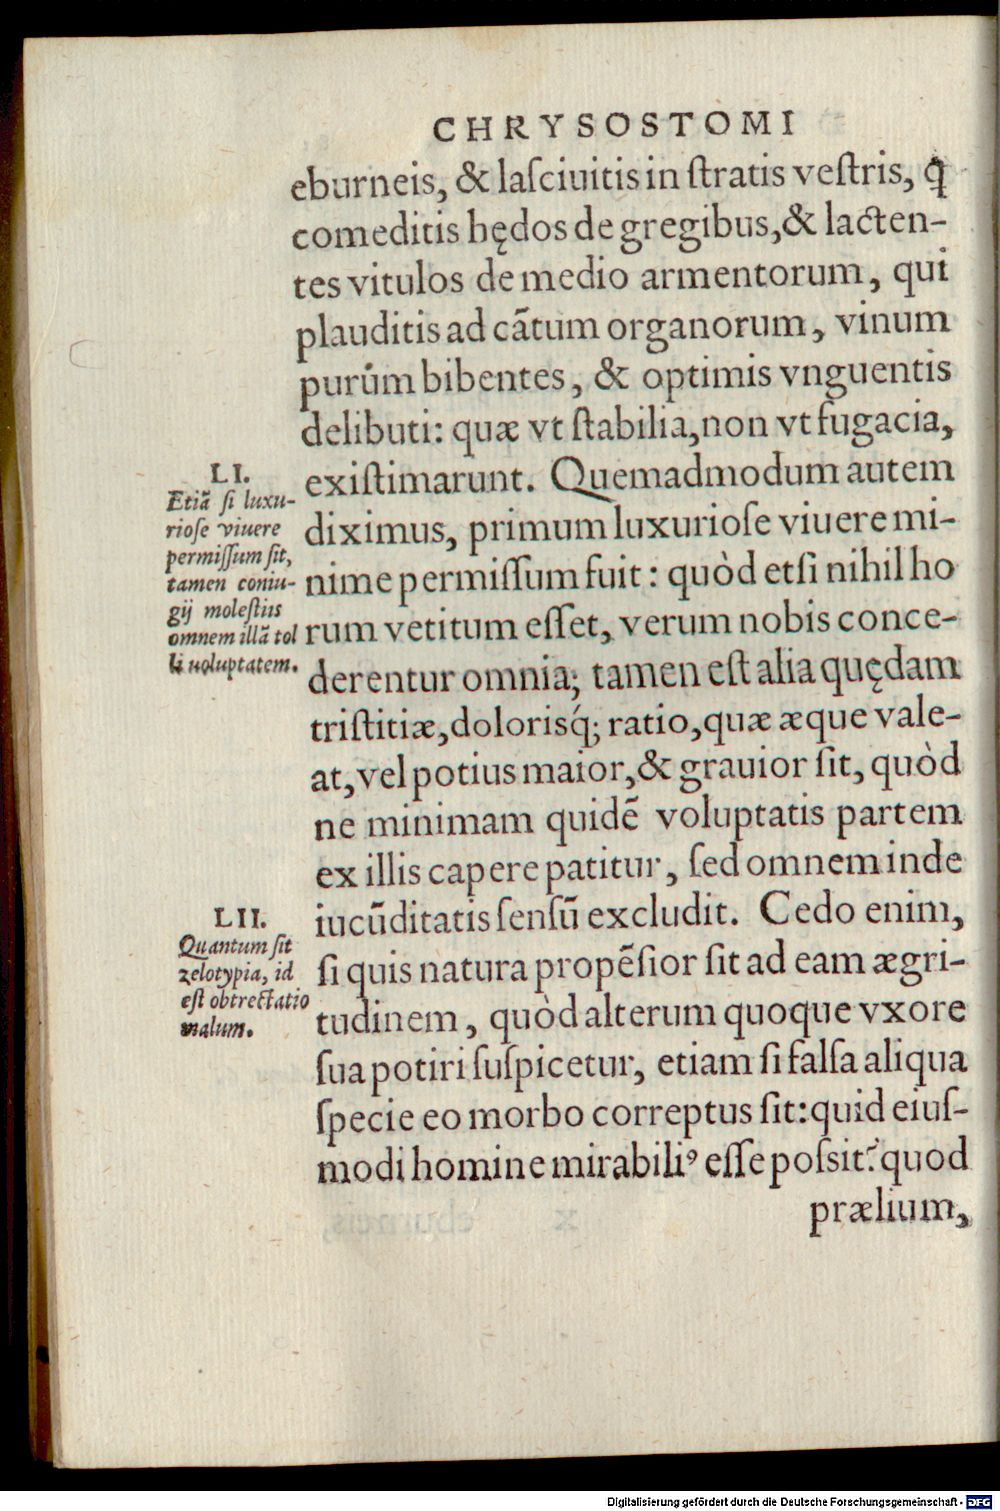 CHRYSOSTOMI
eburneis, & laſciuitis in ſtratis veſtris, q̇
comeditis hędos de gregibus, & lacten-
tes vitulos de medio armentorum, qui
plauditis ad cãtum organorum, vinum
purũm bibentes, & optimis vnguentis
delibuti: quæ vt ſtabilia, non vt fugacia,
exiſtimarunt. Quemadmodum autem
diximus, primum luxurioſe viuere mi-
nime permiſſum fuit: quòd etſi nihil ho
rum vetitum eſſet, verum nobis conce-
derentur omnia; tamen eſt alia quędam
triſtitiæ, doloriſq́; ratio, quæ æque vale-
at, vel potius maior, & grauior ſit, quòd
ne minimam quidẽ voluptatis partem
ex illis capere patitur, ſed omnem inde
iucũditatis ſenſũ excludit. Cedo enim,
ſi quis natura propẽſior ſit ad eam ægri-
tudinem, quòd alterum quoque vxore
ſua potiri ſuſpicetur, etiam ſi falſa aliqua
ſpecie eo morbo correptus ſit: quid eiuſ-
modi homine mirabiliꝰ eſſe poſsit? quod
prælium,
LI.
Etiã ſi luxu-
rioſe viuere
permiſſum ſit,
tamen coniu-
gij moleſtiis
omnem illã tol
li uoluptatem.
LII.
Quantum ſit
zelotypia, id
eſt obtrectatio
malum.
Digitalisierung gefördert durch die Deutsche Forschungsgemeinschaft - DFG